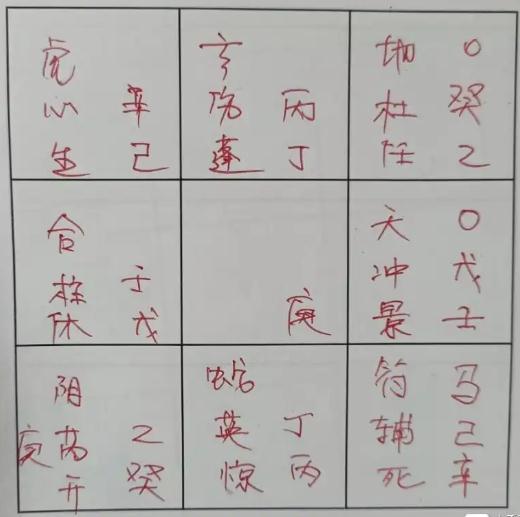 虎
心 辛
生 己
玄
伤 丙
蓬 丁
地 O
杜 癸
任 乙
合
柱 壬
休 戊
庚
天 O
冲 戊
景 壬
阴
庚 芮 乙
开 癸
蛇
英 丁
惊 丙
符 马
辅 己
死 辛